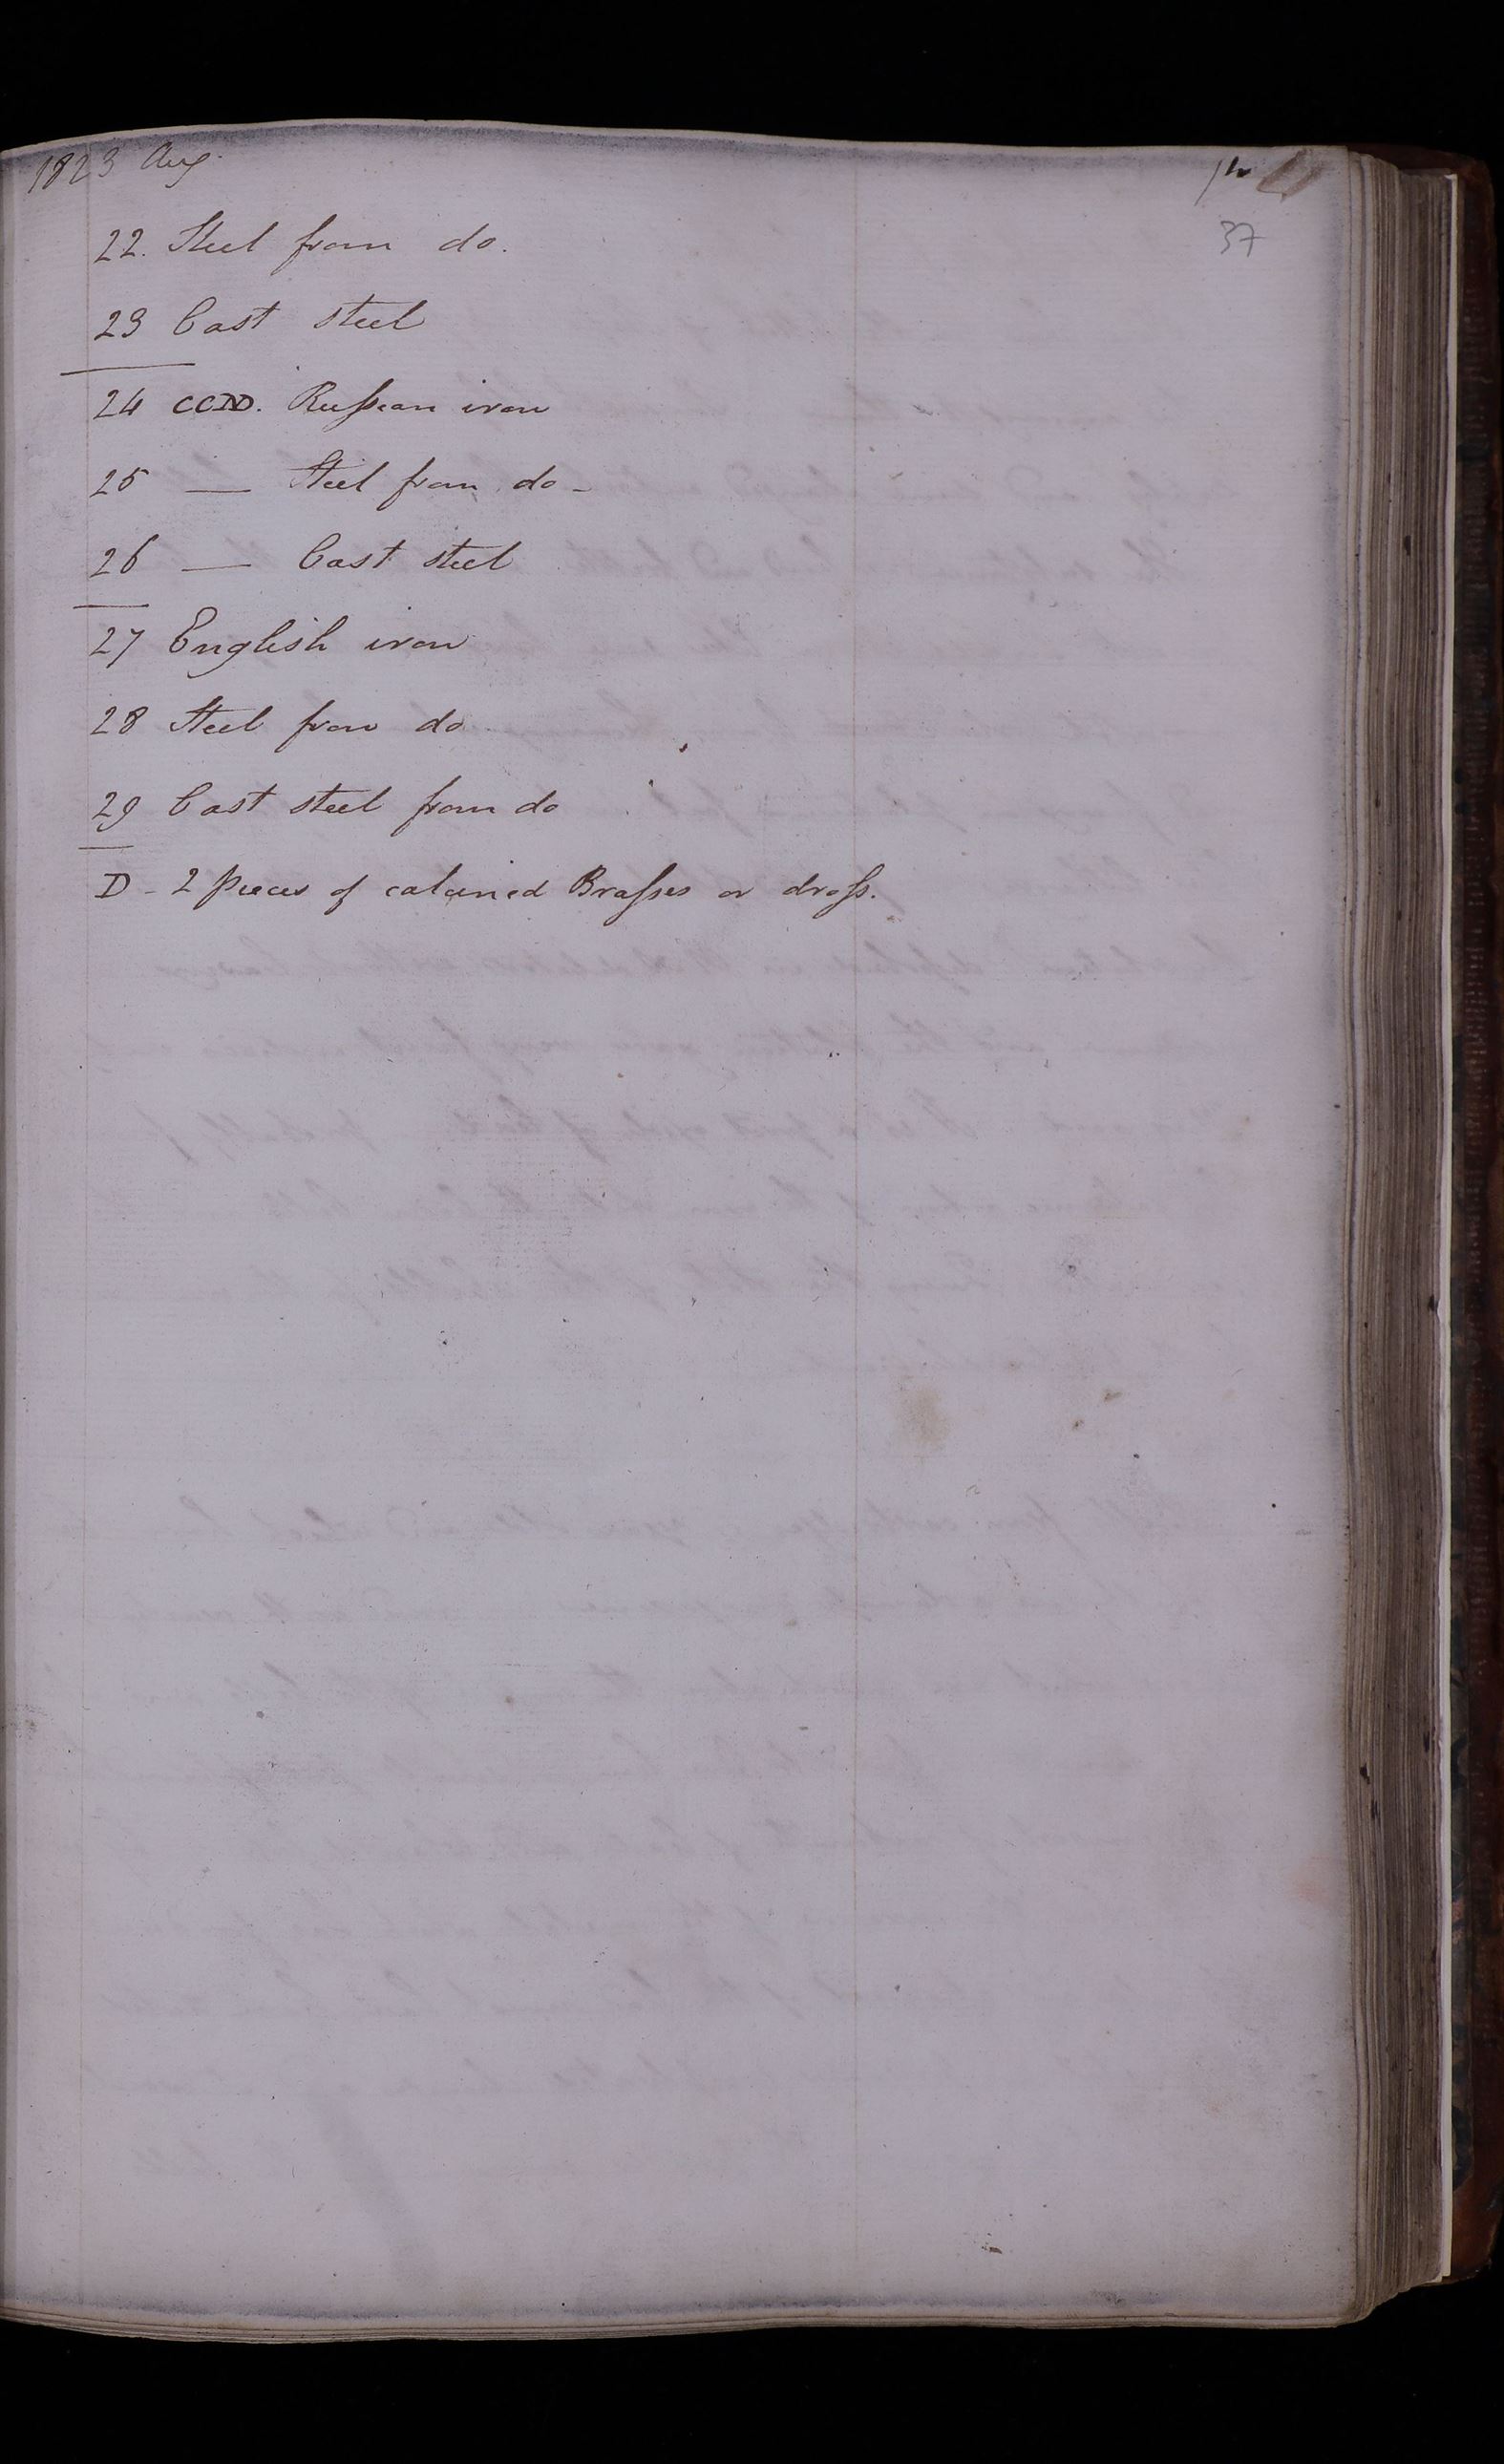 1823 Aug.
37
22. Steel from do.
23 Cast steel
24 CCND. Russian iron
25 — Steel from do -
26 — Cast steel
27 English iron
28 Steel from do
29 Cast steel from do
D - 2 pieces of calcined Brasses or dross.